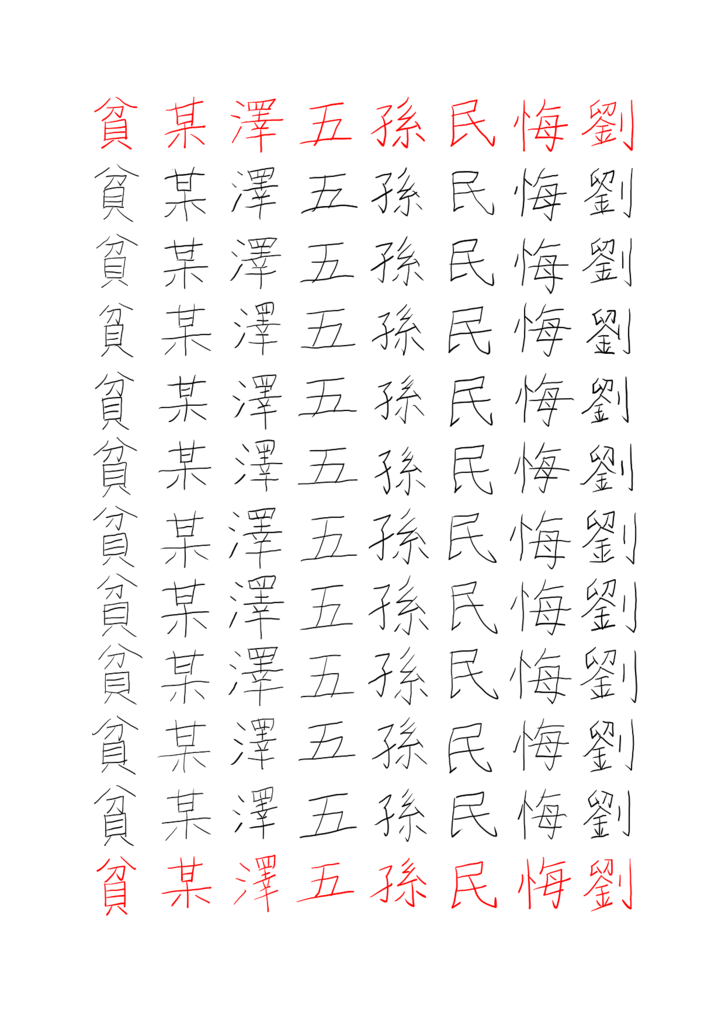 貧某澤五孫民悔劉
貧某澤五孫民悔劉
貧某澤五孫民悔劉
貧某澤五孫民悔劉
貧某澤五孫民悔劉
貧某澤五孫民悔劉
貧某澤五孫民悔劉
貧某澤五孫民悔劉
貧某澤五孫民悔劉
貧某澤五孫民悔劉
貧某澤五孫民悔劉
貧某澤五孫民悔劉